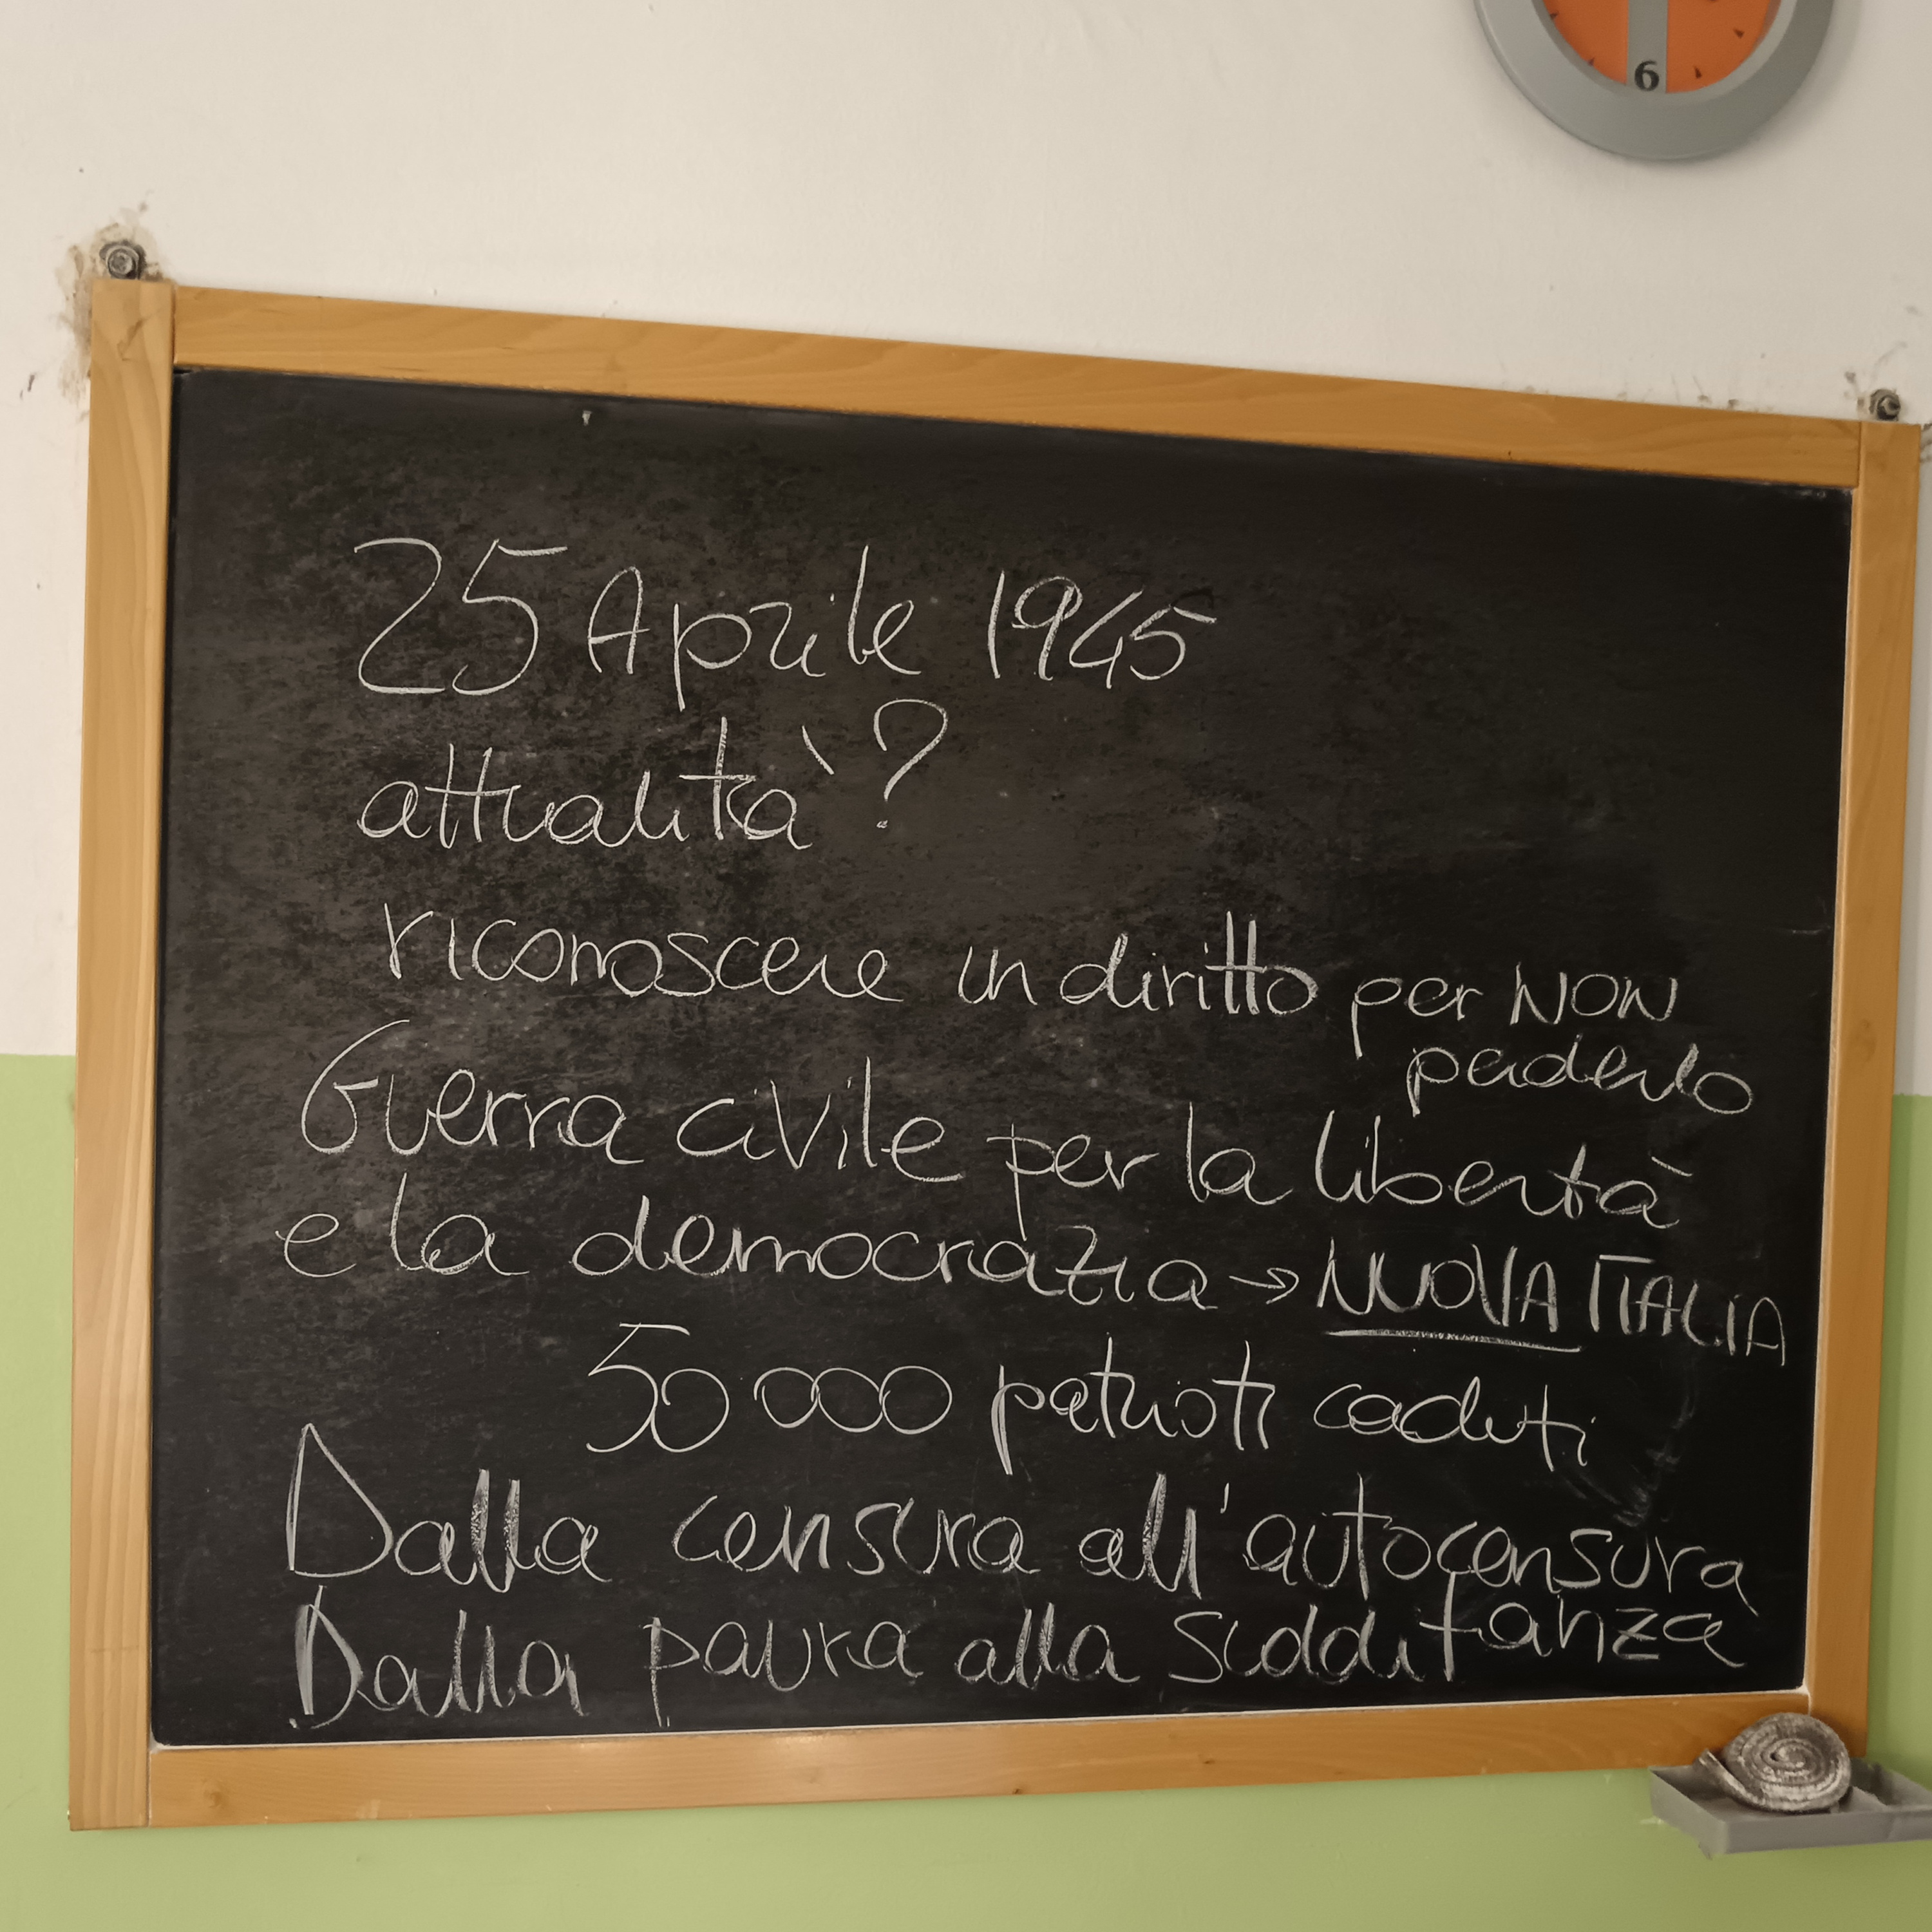 6
25 Aprile 1945
attualità?
riconoscere un diritto per NON
perderlo
Guerra civile per la libertà
e la democrazia → NUOVA ITALIA
50 000 patrioti caduti
Dalla censura all'autocensura
Dalla paura alla sudditanza